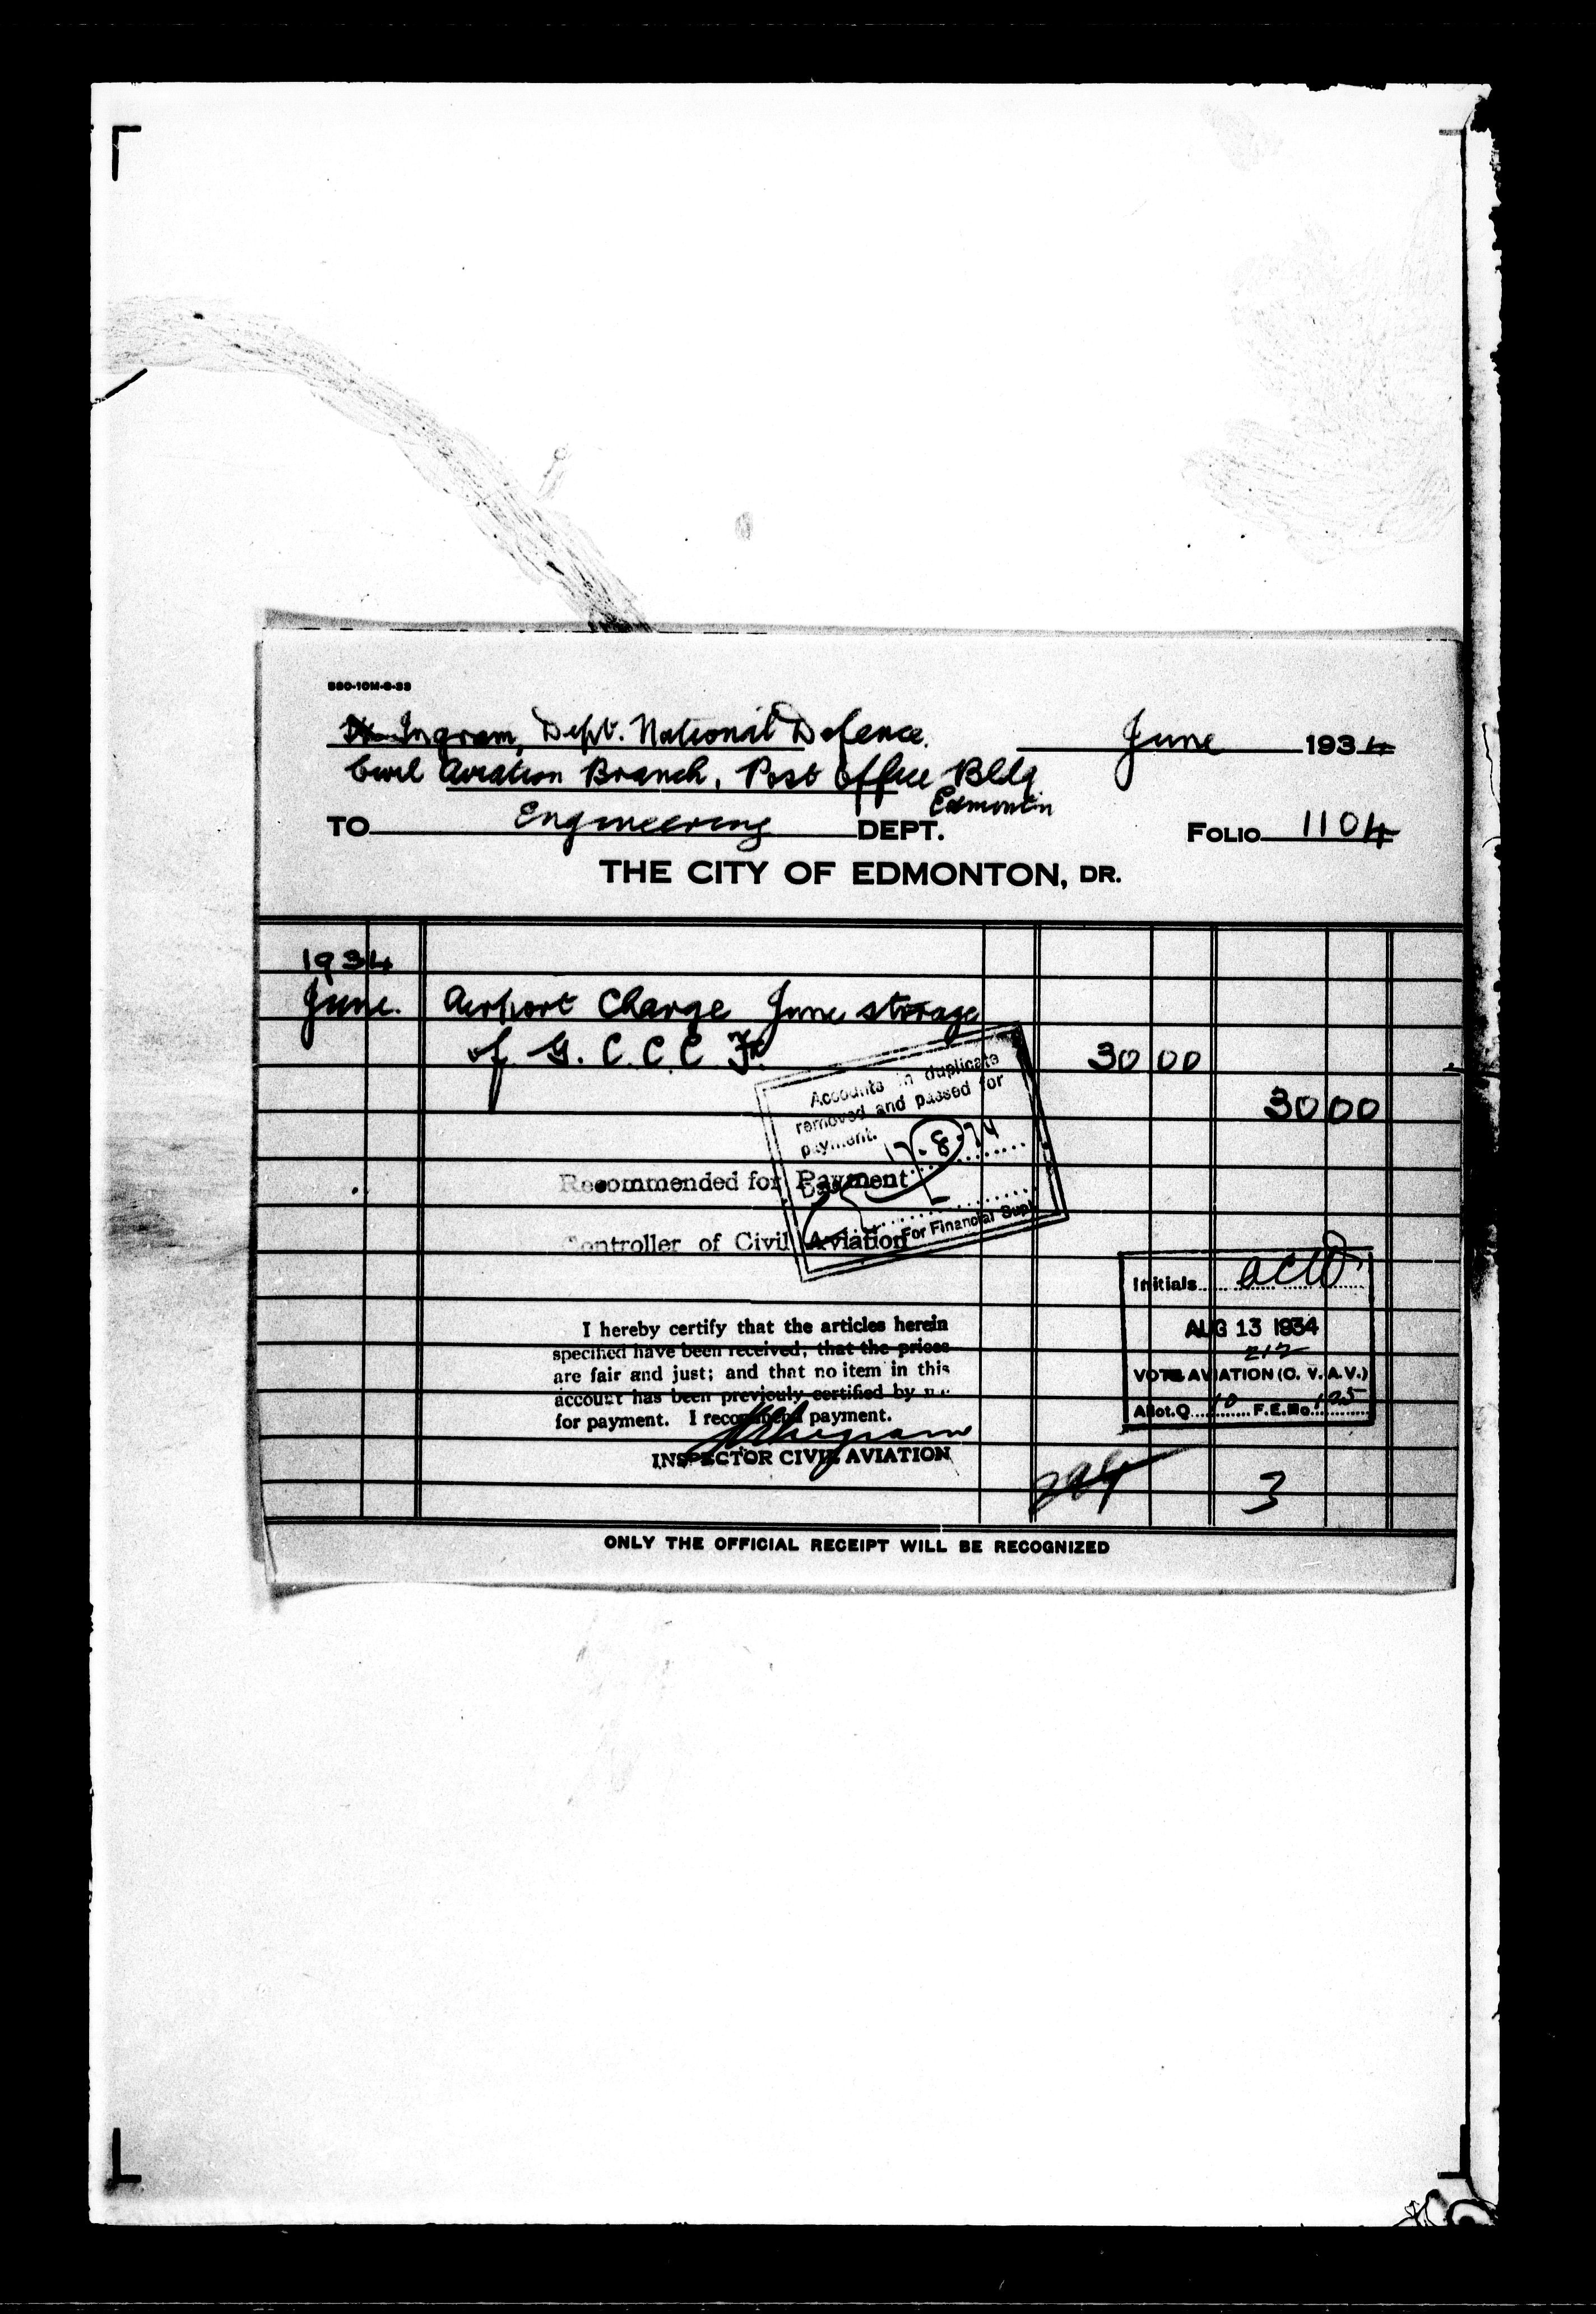 Ingram, Dept. National Defence.
June 1934
Civil Aviation Branch, Post Office Bldg
Edmonton
TO Engineering DEPT.
FOLIO 1104
THE CITY OF EDMONTON, DR.
1934
June. Airport Charge June storage
of G. C. C. C. 30 00
30 00
Accounts in duplicate
removed and passed for
payment.
Recommended for Payment
For Financial Supt
Controller of Civil Aviation
Initials
I hereby certify that the articles herein
AUG 13 1934
specified have been received; that the prices
212
are fair and just; and that no item in this
VOTE AVIATION (O. V. A. V.)
account has been previouly certified by
Allot. Q 10 F.E. No. 125
for payment. I recommend payment.
INSPECTOR CIVIL AVIATION
3
ONLY THE OFFICIAL RECEIPT WILL BE RECOGNIZED